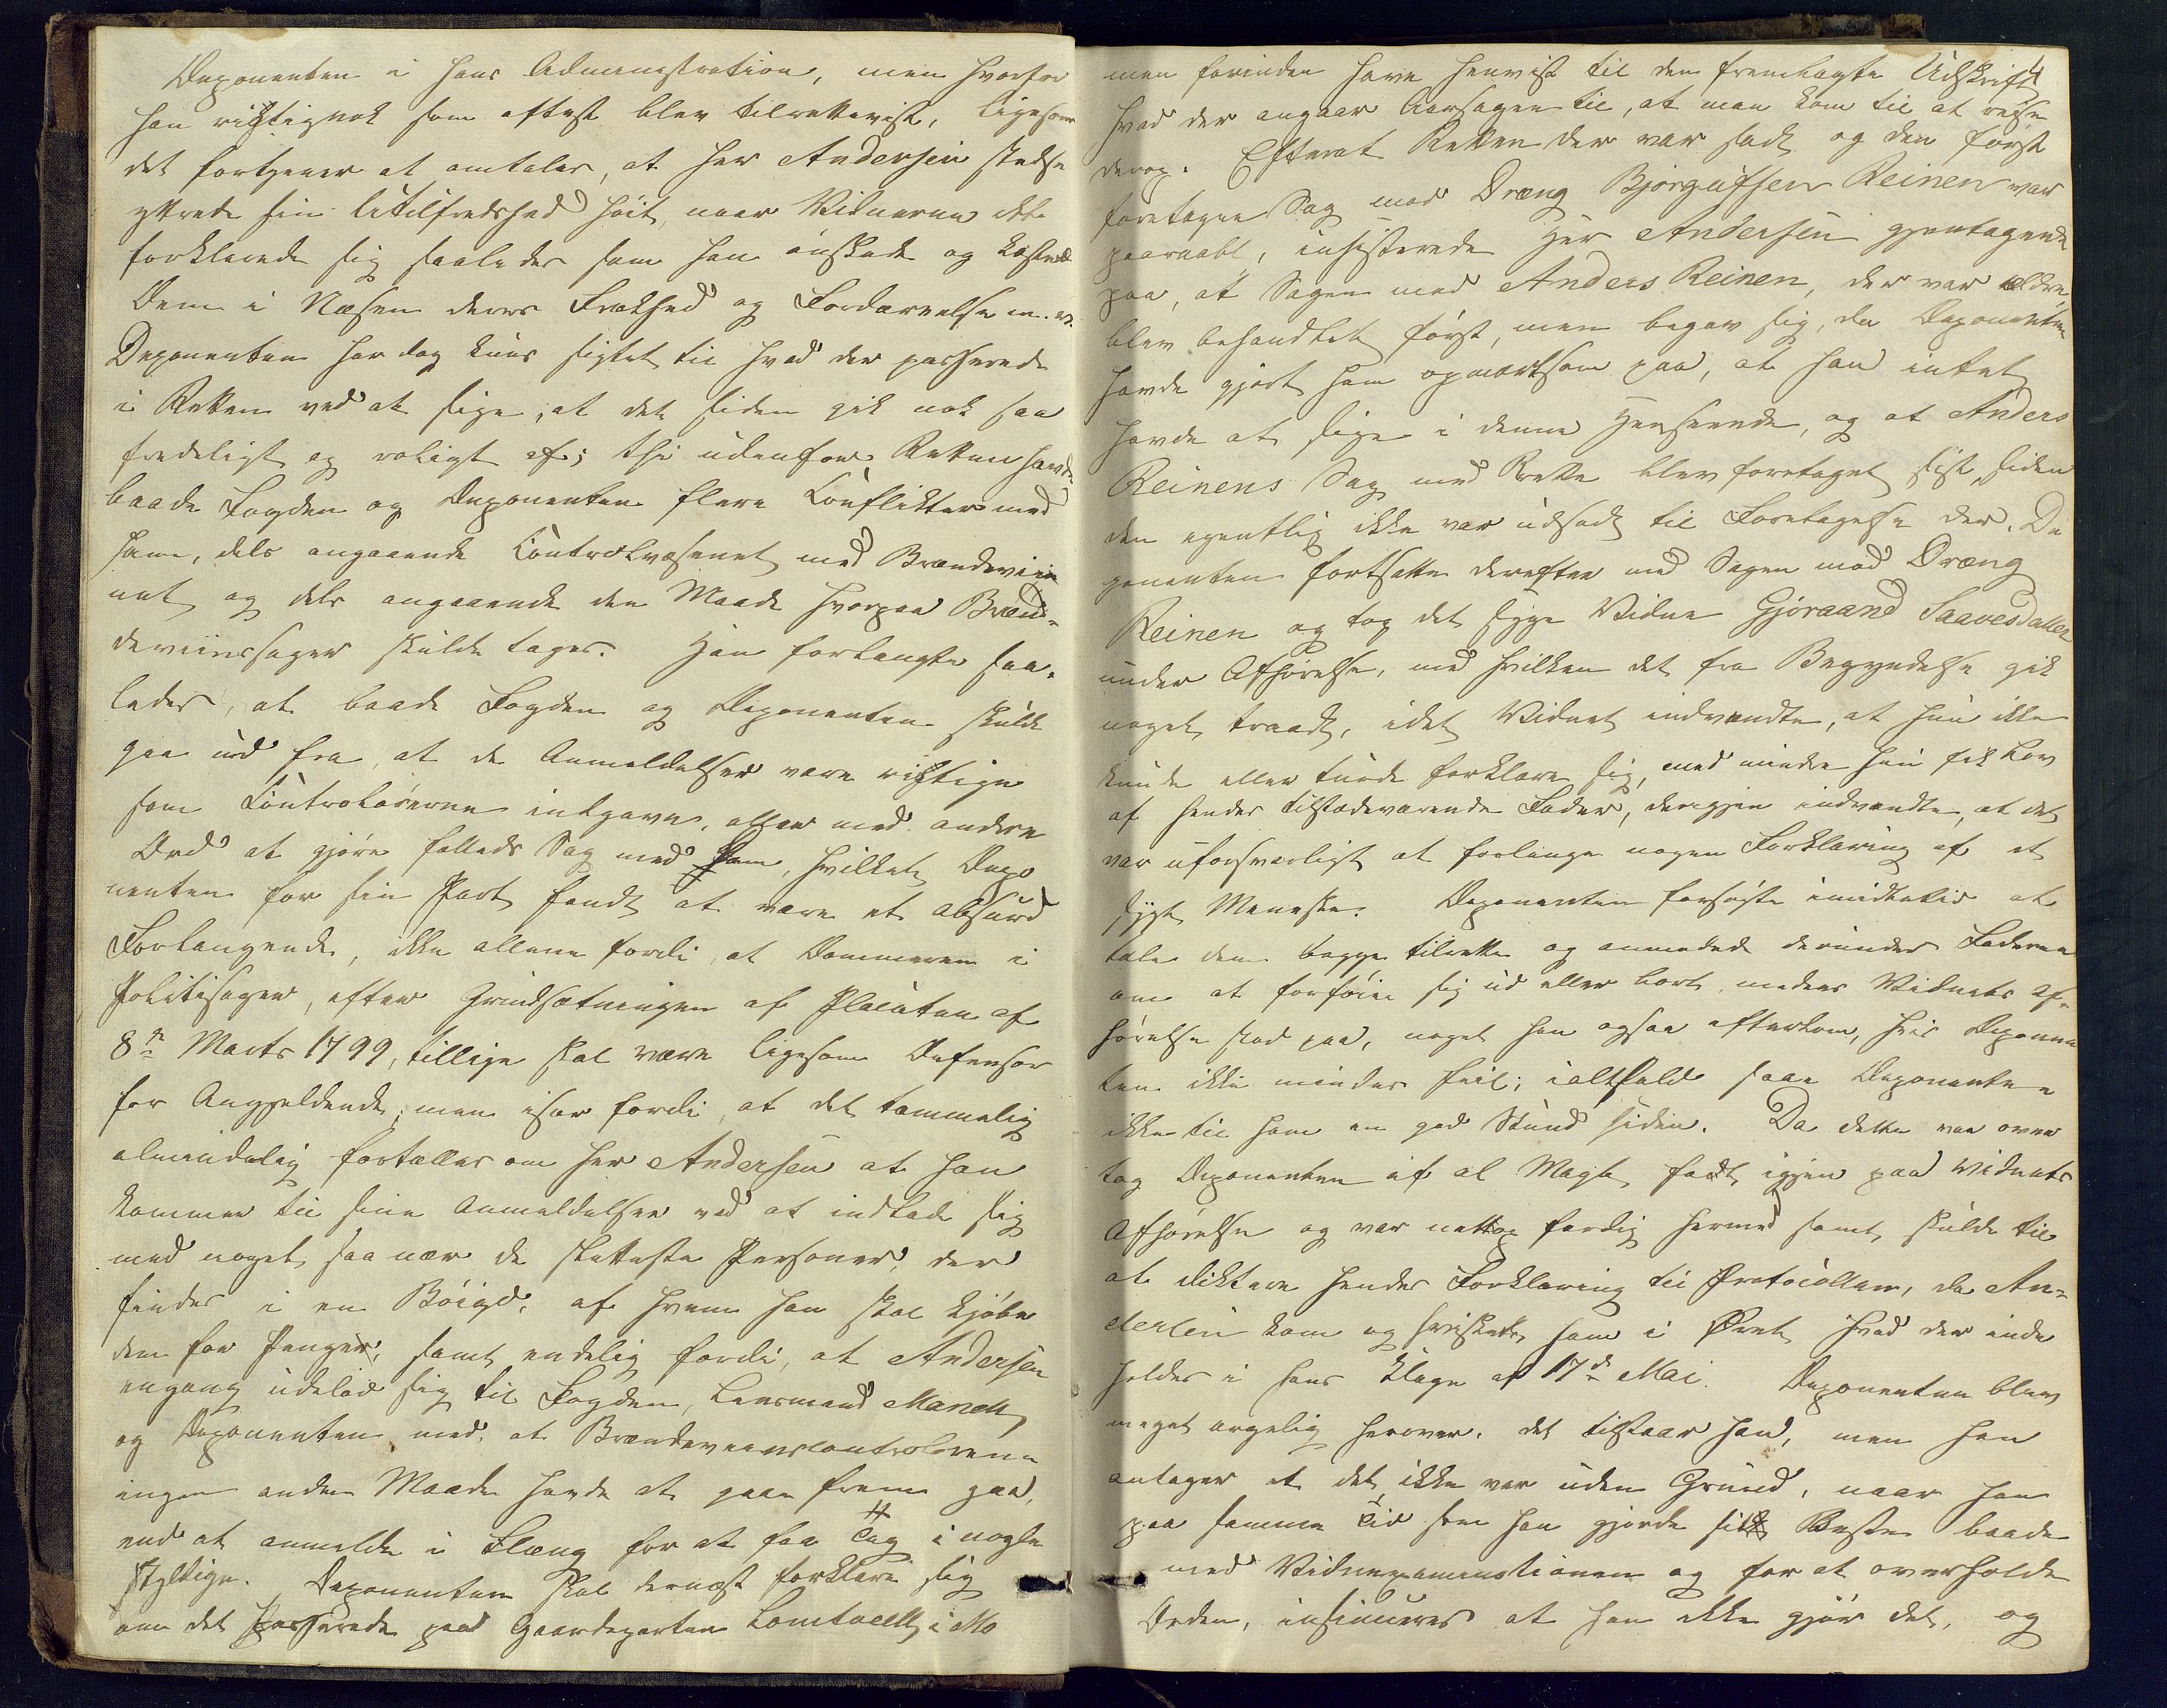 Deponenten i hans Administration, men hvorfor
han rigtignok som oftest blev tilrettevist, ligesom
det fortjener at omtales, at Her Andersen stedse
yttrede sin Utilfredshed høit, naar Vidnerne ikke
forklarede sig saaledes som han ønskede og kastede
Dem i Næsen deres Frækhed og Fordærvelse m. v.
Deponenten har dog kuns sigtet til hvad der passerede
i Retten ved at sige, at det siden gik nok saa
fredeligt og roligt af; thi udenfor Retten havde
baade Fogden og Deponenten flere Conflikter med
ham, dels angaaende Controlvæsenet med Brændeviin
net og dels angaaende den Maade hvorpaa Bræn-
deviinssager skulde tages. Han forlangte saa-
ledes, at baade Fogden og Deponenten skulde
gaa ud fra, at de Anmeldelser vare rigtige
som Controlørerne indgave, eller med andre
Ord at gjøre fælleds Sag med ham, hvilket Depo
nenten for sin Part fandt at være et absurd
Forlangende, ikke allene fordi, at Dommeren i
Politisager, efter Grundsætningen af Placaten af
8de Marts 1799, tillige skal være ligesom Defensor
for Angjeldende, men især fordi, at det temmelig
almindelig fortælles om Her Andersen at han
kommer til sine Anmeldelser ved at indlade sig
med noget saa nær de sletteste Personer, der
findes i en Bøigd, af hvem han skal kjøbe
dem for Penger, samt endelig fordi, at Andersen
engang udelod sig til Fogden, Lensmand Manell
og Deponenten med, at Brændeviinscontrolørerne
ingen anden Maade havde at gaae frem paa,
end at anmelde i Flæng for at faa Tag i nogle
skyldige. Deponenten skal dernæst forklare sig
om det Passerede paa Gaardeparten Lomtvedt i Mo
men forinden have henvist til den fremlagte Udskrift
hvad der angaar Aarsagen til, at man kom til at reise
derop. Efterat Retten der var sadt og den først
foretagne Sag mod Dreng Bjørgufsen Reinen var
paaraabt, insisterede Her Andersen gjentagende
paa, at Sagen med Anders Reinen, der var ældre,
blev behandlet først, men begav sig, da Deponenten
havde gjort ham opmærksom paa, at han intet
havde at sige i denne Henseende, og at Anders
Reinens Sag med Rette blev foretaget sist, siden
den egentlig ikke var udsadt til Foretagelse der. De
ponenten fortsatte derefter med Sagen mod Dræng
Reinen og tog det syge Vidne Gjøraand Saavesdatter
under Afhørelse, med hvilken det fra Begyndelse gik
noget traadt, idet Vidnet indvendte, at hun ikke
kunde eller turde forklare sig, med mindre hun fik Lov
af hendes tilstædeværende Fader, der igjen indvendte, at det
var uforsvarligt at forlange nogen Forklaring af et
sygt Menneske. Deponenten forsøgte imidlertid at
tale dem begge tilrette og anmodede derunder Faderen
om at forføie sig ud eller bort, medens Vidnets Af-
hørelse stod paa, noget han ogsaa efterkom, hvis Deponen
ten ikke mindes feil; ialtfald saae Deponenten
ikke til ham en god Stund siden. Da dette var over
tog Deponenten af al Magt fadt igjen paa Vidnets
Afhørelse og var nettop færdig hermed samt skulde til
at diktere hendes Forklaring til Protocollen, da An-
dersen kom og hviskede ham i Øret hvad der inde
holdes i hans Klage af 17de Mai. Deponenten blev
meget ærgelig herover, det tilstaar han, men han
antager at det ikke var uden Grund, naar han
paa samme Tid som han gjorde sit Beste baade
med Vidneexaminationen og for at overholde
Orden, insinueres at han ikke gjør det, og